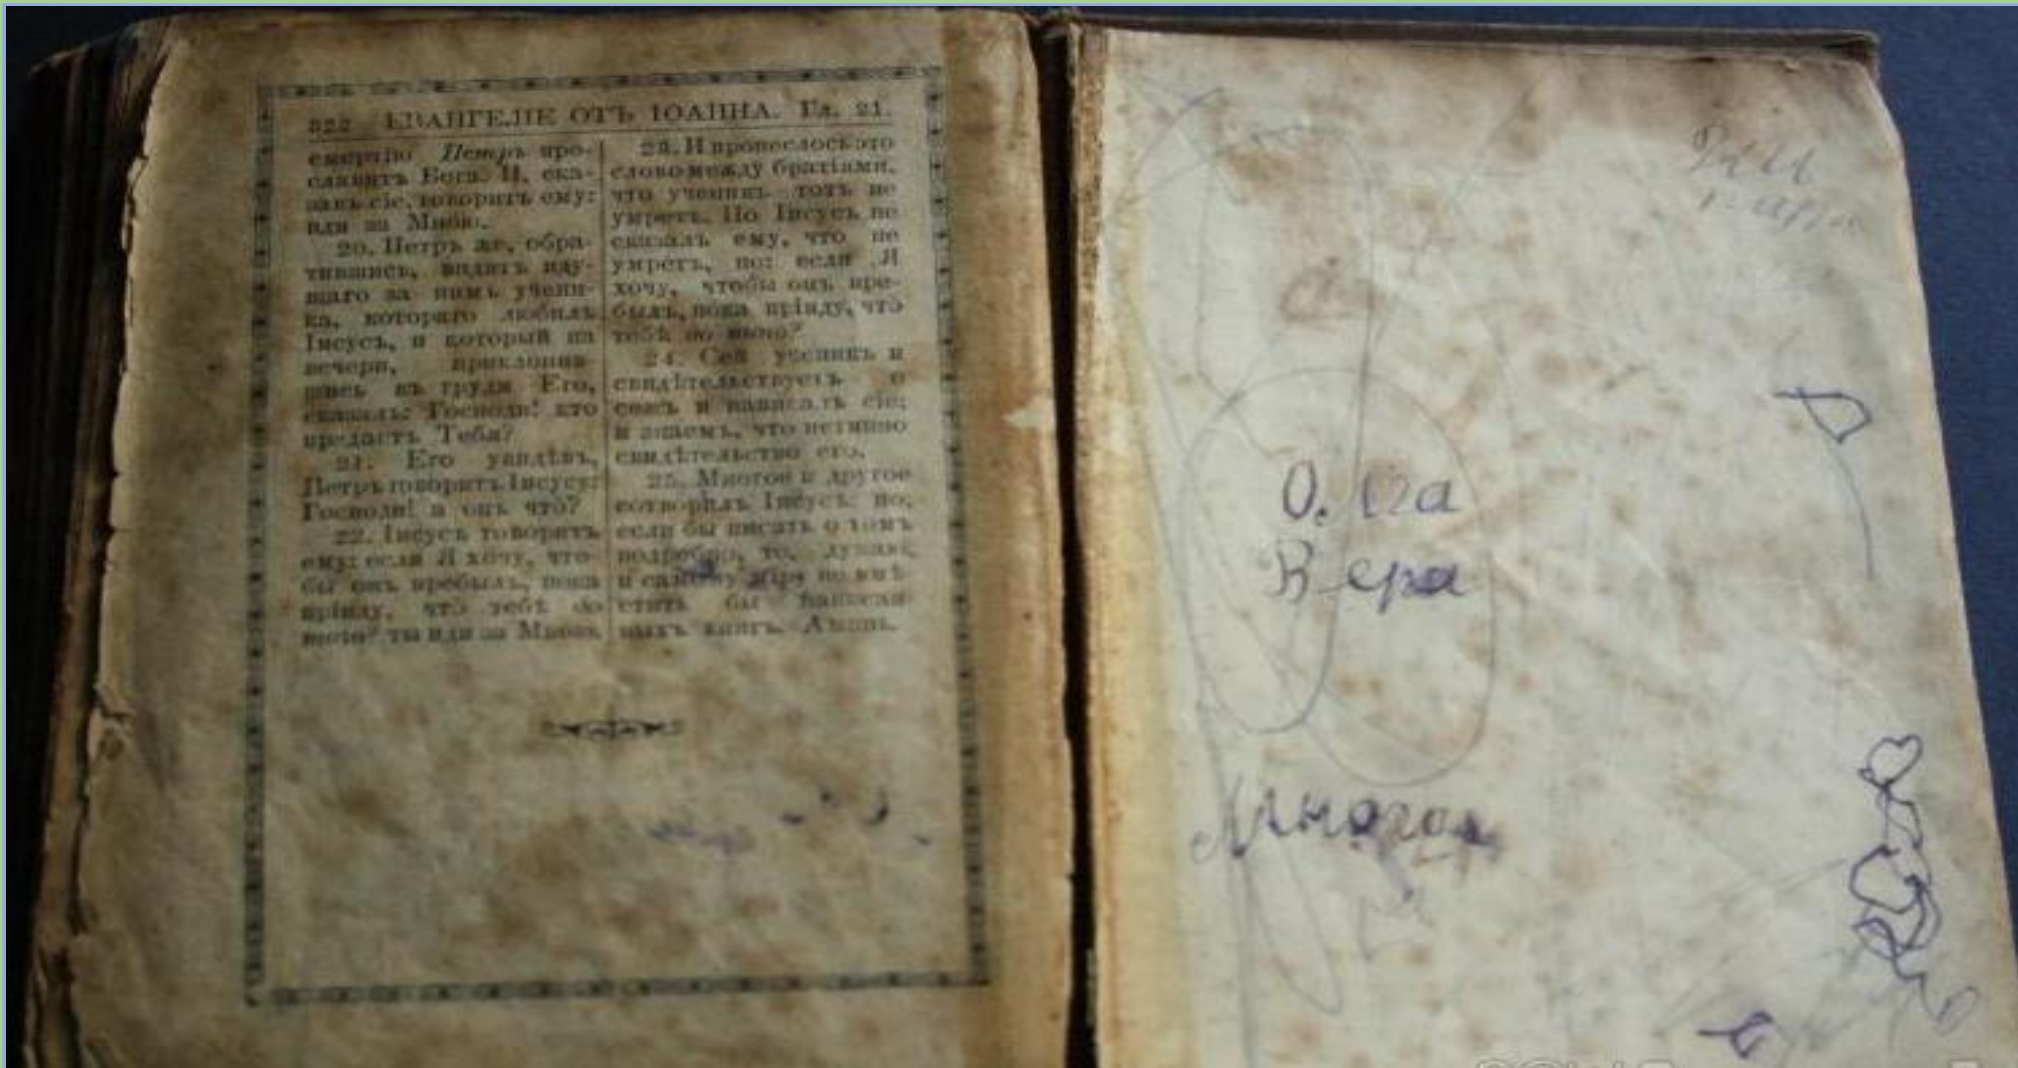 322 ЕВАНГЕЛІЕ ОТЪ ІОАННА. Гл. 21.
смертію Петръ про-
славитъ Бога. И, ска-
завъ сіе, говоритъ ему:
иди за Мною.
20. Петръ же, обра-
тившись, видитъ иду-
щаго за нимъ учени-
ка, котораго любилъ
Іисусъ, и который на
вечери, приклонив-
шись къ груди Его,
сказалъ: Господи! кто
предастъ Тебя?
21. Его увидѣвъ,
Петръ говоритъ Іисусу:
Господи! а онъ что?
22. Іисусъ говоритъ
ему: если Я хочу, что-
бы онъ пребылъ, пока
пріиду, что̀ тебѣ до
того? ты иди за Мною.
23. И пронеслось это
слово между братіями,
что ученикъ тотъ не
умретъ. Но Іисусъ не
сказалъ ему, что не
умретъ, но: если Я
хочу, чтобы онъ пре-
былъ, пока пріиду, что̀
тебѣ до того?
24. Сей ученикъ и
свидѣтельствуетъ о
семъ и написалъ сіе;
и знаемъ, что истинно
свидѣтельство его.
25. Многое и другое
сотворилъ Іисусъ: но,
если бы писать о томъ
подробно, то, думаю,
и самому міру не вмѣ-
стить бы написан-
ныхъ книгъ. Аминь.
Вера